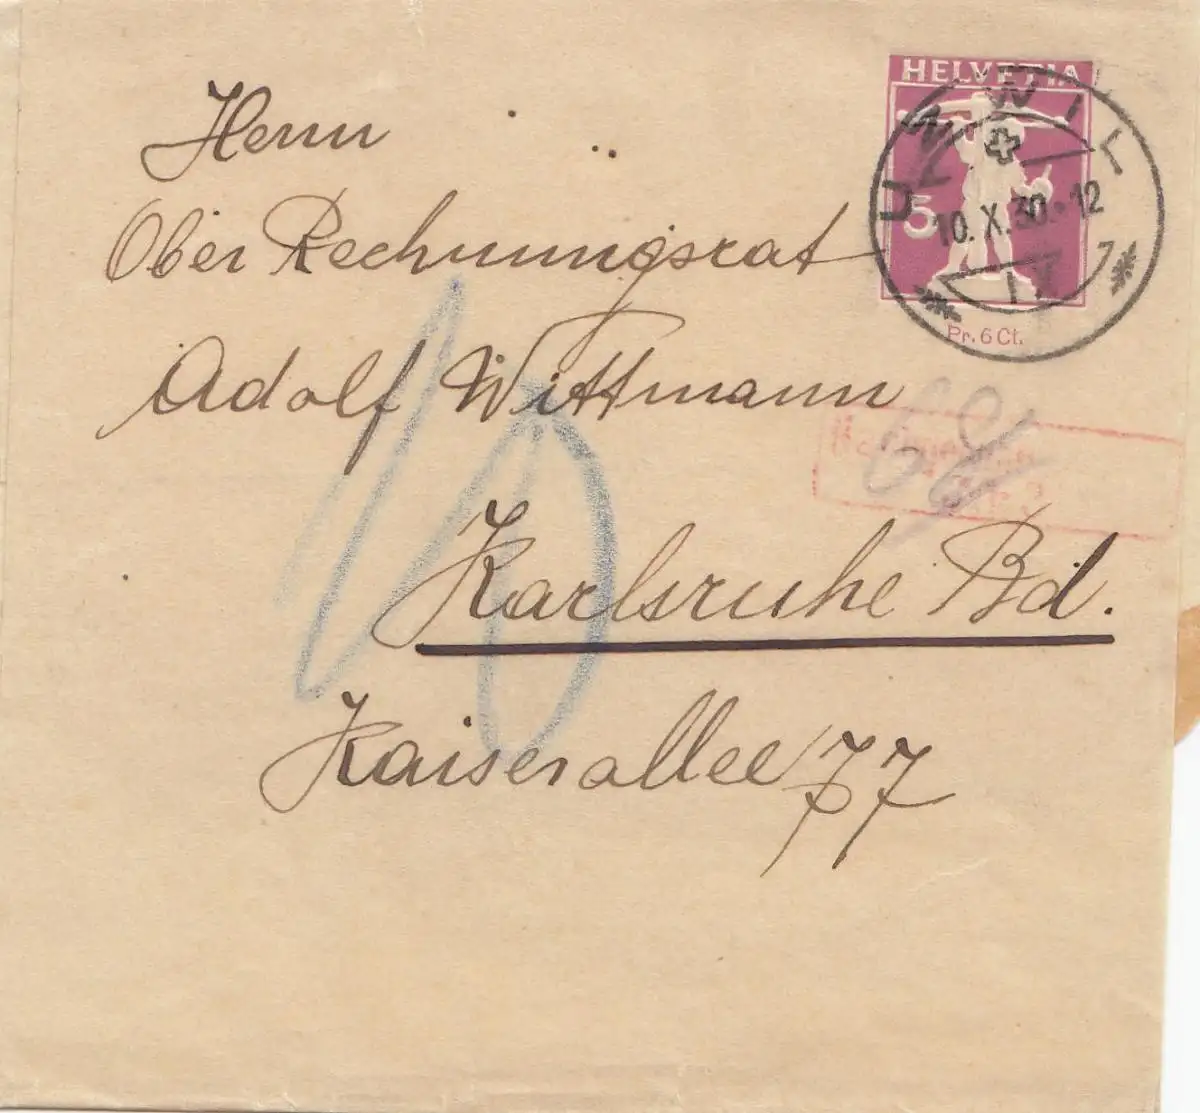 HELVETIA
UZWIL
5
10. X. 30.-12
Pr. 6 Ct.
Herrn
Ober Rechnungsrat
Adolf Wittmann
Karlsruhe Bd.
Kaiserallee 77
10